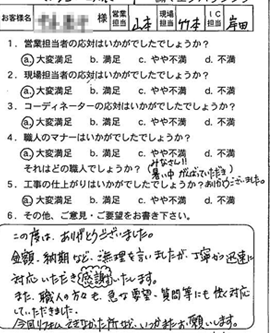 お客様名 営業担当 山本 現場担当 竹本 IC担当 岸田
1. 営業担当者の応対はいかがでしたでしょうか？
a. 大変満足 b. 満足 c. やや不満 d. 不満
2. 現場担当者の応対はいかがでしたでしょうか？
a. 大変満足 b. 満足 c. やや不満 d. 不満
3. コーディネーターの応対はいかがでしたでしょうか？
a. 大変満足 b. 満足 c. やや不満 d. 不満
4. 職人のマナーはいかがでしたでしょうか？
a. 大変満足 b. 満足 c. やや不満 d. 不満
それはどの職人でしょうか？（みなさん!!
暑い中がんばっていただき
5. 工事の仕上がりはいかがでしたでしょうか？ ありがとうございました。
a. 大変満足 b. 満足 c. やや不満 d. 不満
6. その他、ご意見・ご要望をお書き下さい。
この度は、ありがとうございました。
金額、納期など、ご無理を言いましたが、丁寧かつ迅速に
対応いただき感謝いたします。
また、職人の方々も、急な要望、質問等にも快く対応
していただきました。
今回リフォームできなかった所など、いつかまたお願いします。